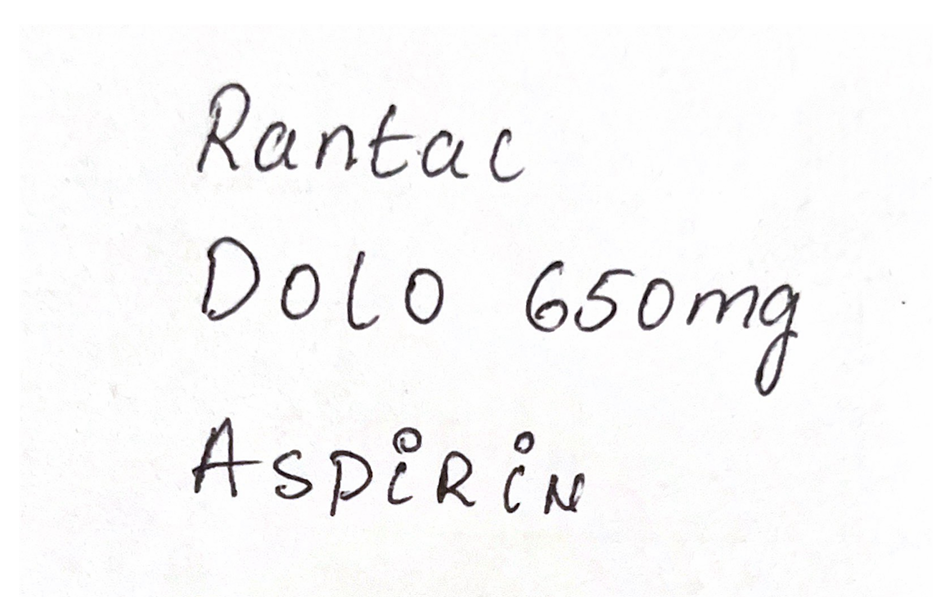 Rantac
Dolo 650mg
Aspirin